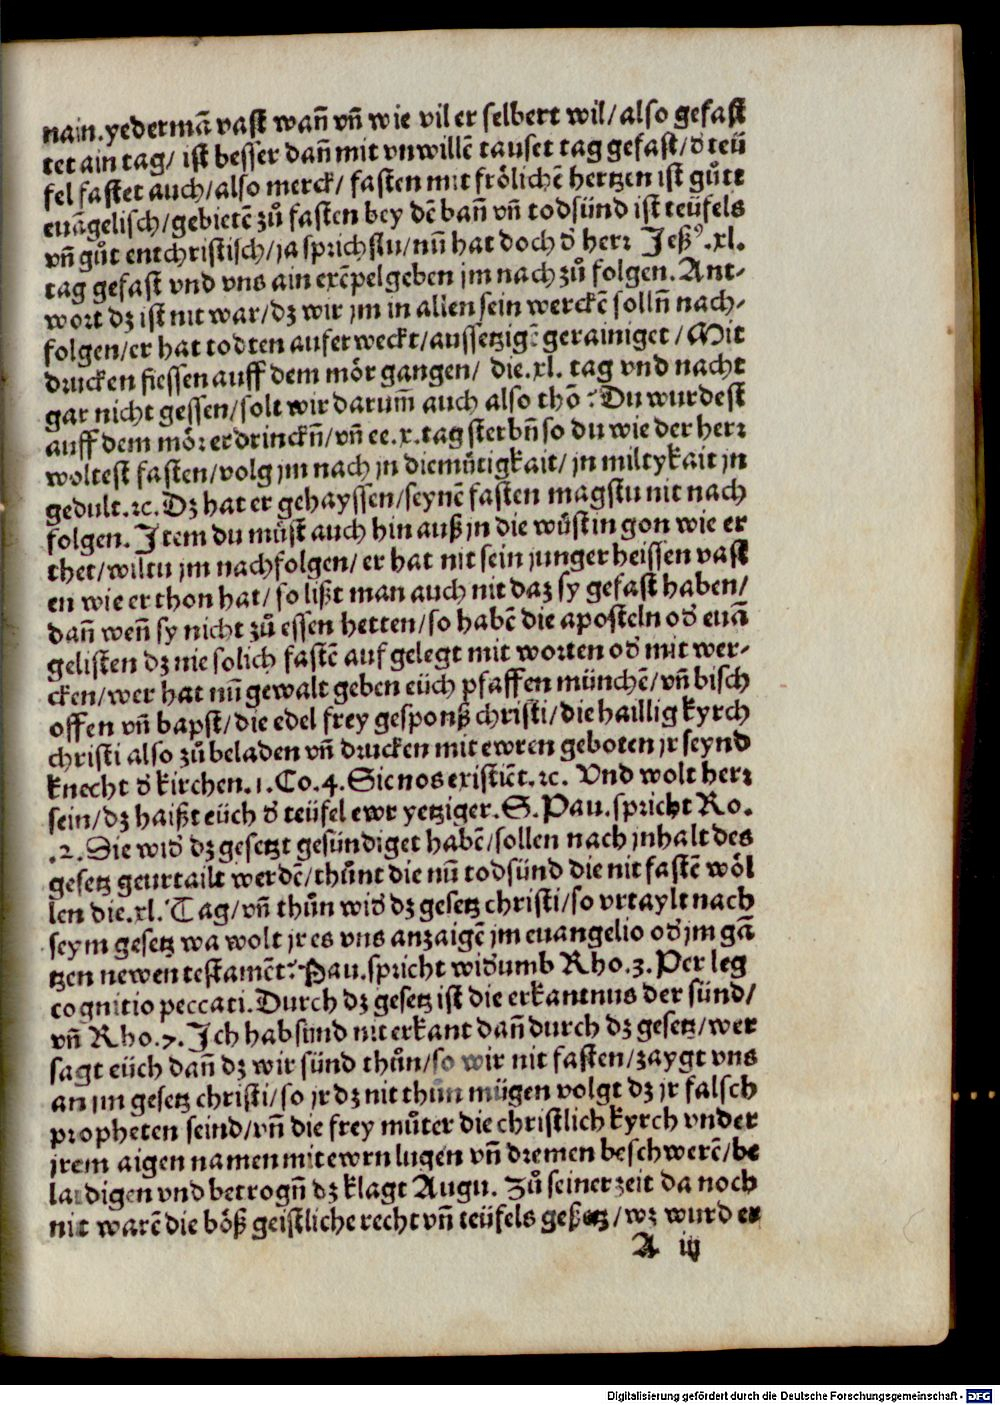 nain. yedermā vast wañ vñ wie vil er selbert wil/also gefast
tet ain tag/ ist besser dañ mit vnwillē tauset tag gefast/d̕ teü
fel fastet auch/also merck/ fasten mit frölichē hertzen ist gůtt
euāgelisch/gebietē zů fasten bey dē bañ vñ todsünd ist teüfels
vñ gůt entchristisch/ja sprichstu/nũ hat doch d̕ herr Jeßꝰ.xl.
tag gefast vnd vns ain exēpel geben jm nach zů folgen. Ant-
wort dz ist nit war/dz wir jm in allen sein werckē solln̄ nach-
folgen/er hat todten auferweckt/aussetzigē gerainiget / Mit
drucken fiessen auff dem mör gangen/ die.xl. tag vnd nacht
gar nicht gessen/solt wir darum̄ auch also thō? Du wurdest
auff dem mör erdrinckn̄/vñ ee.x.tag sterbn̄ so du wie der herr
woltest fasten/volg jm nach jn diemůtigkait/ jn miltykait jn
gedult.ꝛc. Dz hat er gehayssen/seynē fasten magstu nit nach
folgen. Item du můst auch hin auß jn die wůstin gon wie er
thet/wiltu jm nachfolgen/ er hat nit sein junger heissen vast
en wie er thon hat/ so lißt man auch nit daz sy gefast haben/
dañ weñ sy nicht zů essen hetten/so habē die aposteln od̕ euā
gelisten dz nie solich fastē auf gelegt mit worten od̕ mit wer-
cken/wer hat nũ gewalt geben eüch pfaffen münchē/vñ bisch
offen vñ bapst/die edel frey gesponß christi/die haillig kyrch
christi also zů beladen vñ drucken mit ewren geboten jr seynd
knecht d̕ kirchen.1.Co.4. Sic nos existiēt.ꝛc. Vnd wolt herr
sein/dz haißt eüch d̕ teüfel ewr yetziger. S. Pau.spricht Ro.
.2. Die wid̕ dz gesetzt gesündiget habē/sollen nach jnhalt des
gesetz geurtailt werdē/thůnt die nũ todsünd die nit fastē wöl
len die.xl. Tag/vñ thůn wid̕ dz gesetz christi/so vrtaylt nach
seym gesetz wa wolt jr es vns anzaigē jm euangelio od̕ jm gā
tzen newen testamēt? Pau.spricht wid̕umb Rho.3. Per leg
cognitio peccati. Durch dz gesetz ist die erkantnus der sünd/
vñ Rho.7. Ich hab sünd nit erkant dañ durch dz gesetz/wer
sagt eüch dañ dz wir sünd thůn/so wir nit fasten/zaygt vns
an jm gesetz christi/so jr dz nit thůn mügen volgt dz jr falsch
propheten seind/vñ die frey můter die christlich kyrch vnder
jrem aigen namen mit ewrn lugen vñ dremen beschwerē/be
laidigen vnd betrogn̄ dz klagt Augu. Zů seiner zeit da noch
nit warē die böß geistliche recht vñ teüfels geßetz/wz wurd er
A iij
Digitalisierung gefördert durch die Deutsche Forschungsgemeinschaft - DFG